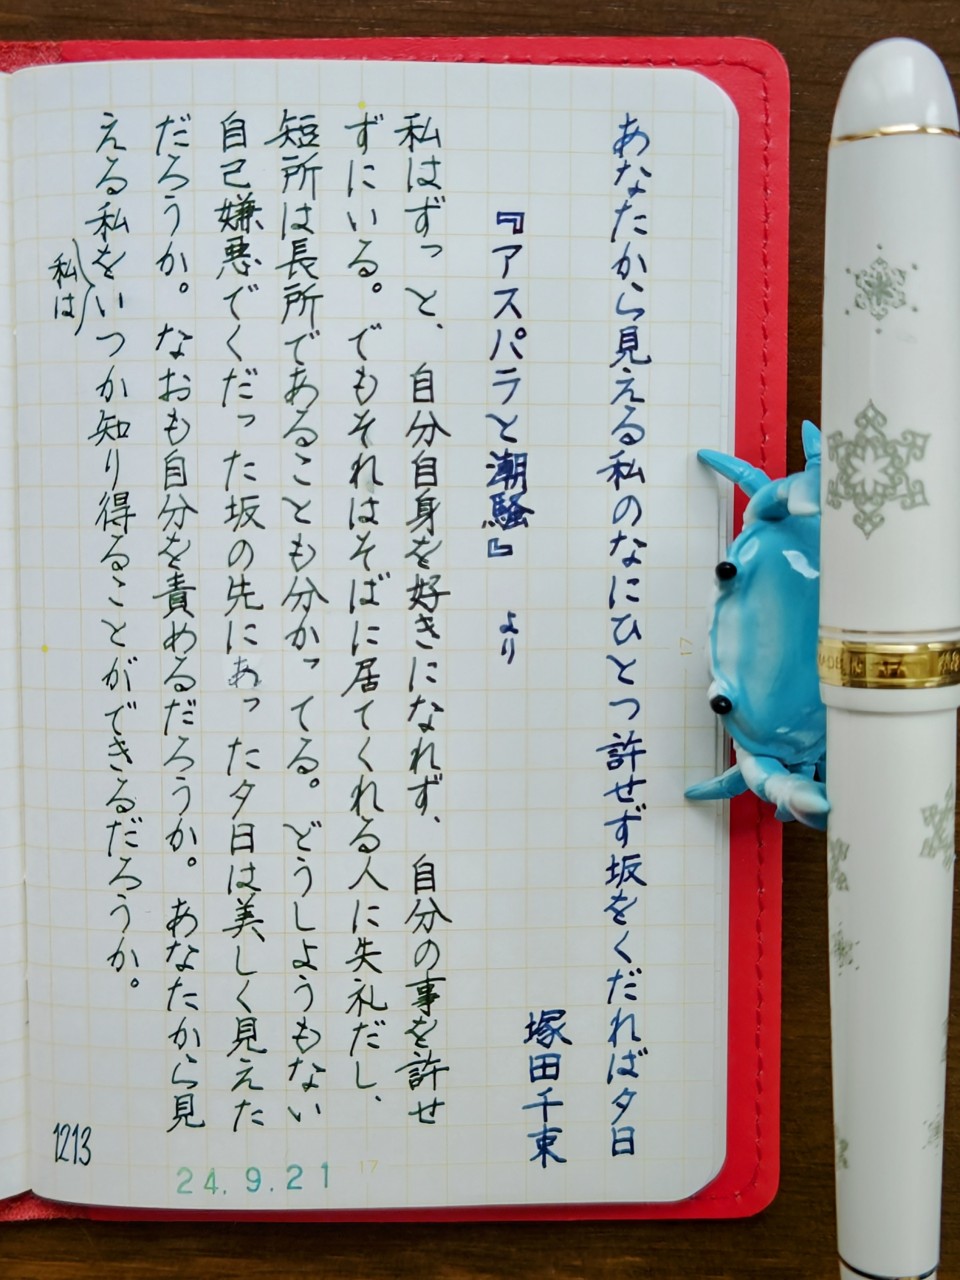 あなたから見える私のなにひとつ許せず坂をくだれば夕日
『アスパラと潮騒』 より
塚田千束
私はずっと、自分自身を好きになれず、自分の事を許せ
ずにいる。でもそれはそばに居てくれる人に失礼だし、
短所は長所であることも分かってる。どうしようもない
自己嫌悪でくだった坂の先にあった夕日は美しく見えた
だろうか。なおも自分を責めるだろうか。あなたから見
える私をいつか知り得ることができるだろうか。
私は
1213
24.9.21
17
17